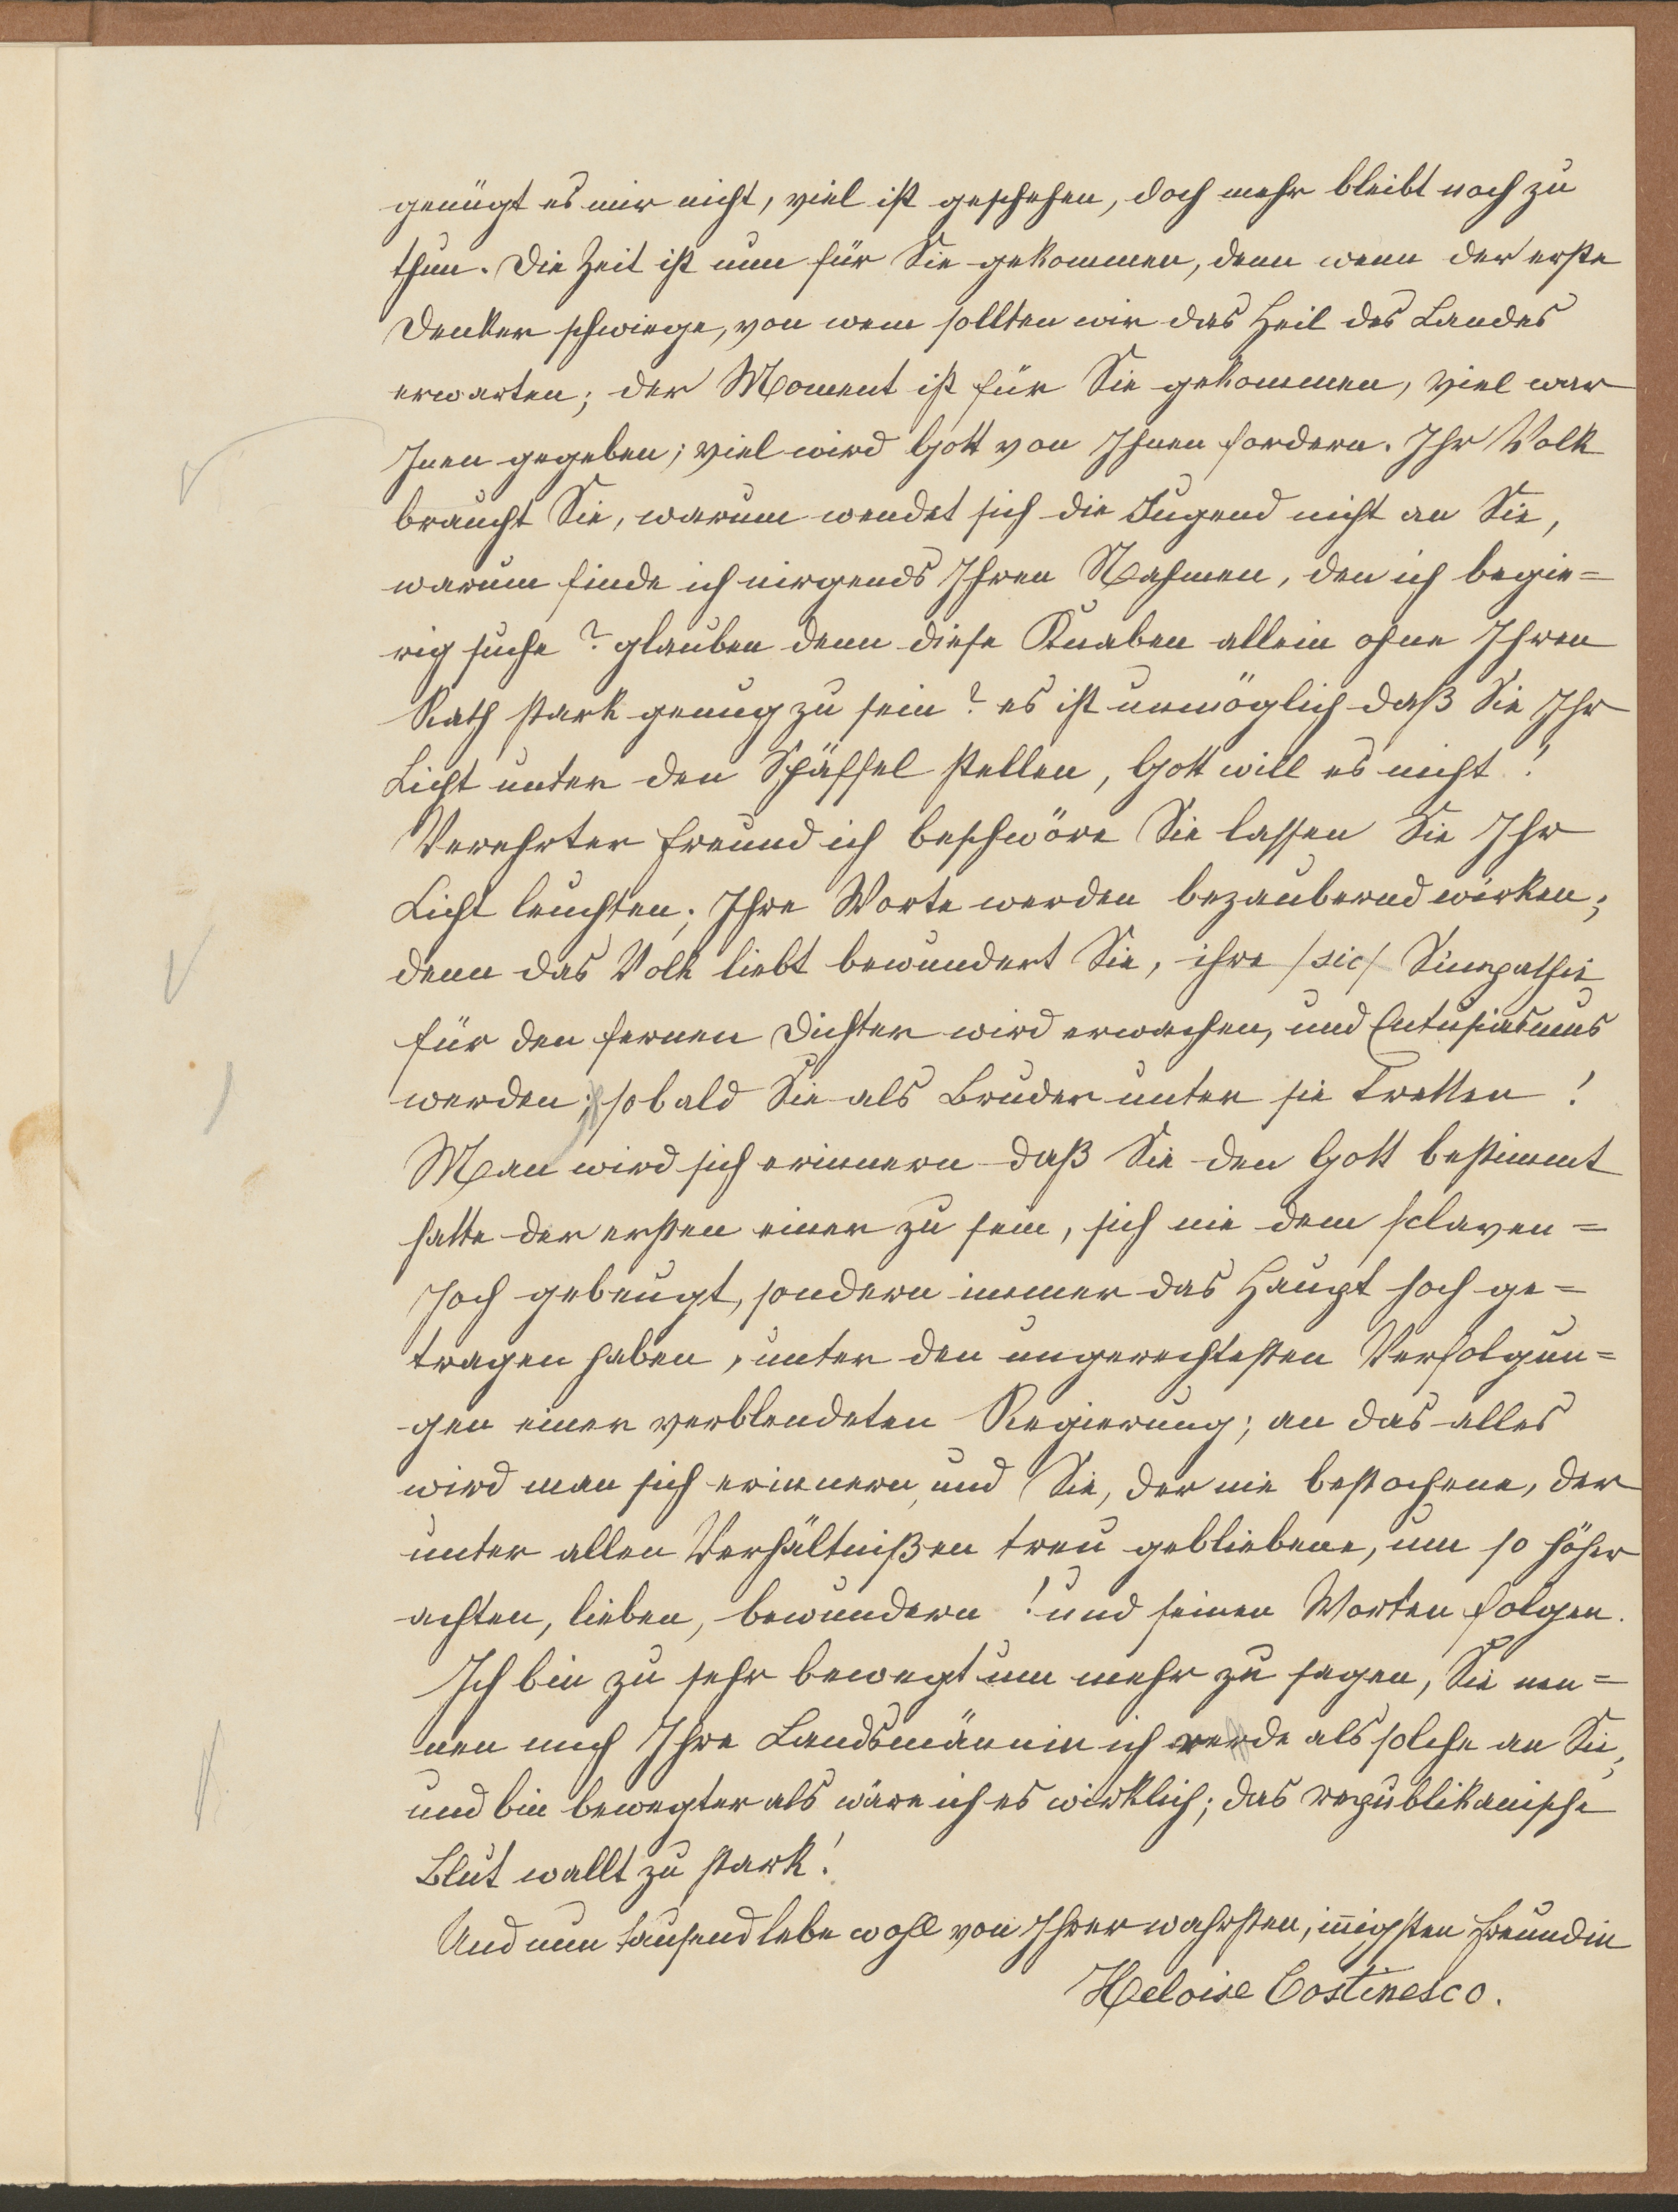 genügt es mir nicht, viel ist geschehen, doch mehr bleibt noch zu
thun. Die Zeit ist nun für Sie gekommen, denn wenn der erste
Denker schwiege, von wem sollten wir das Heil des Landes
erwarten; der Moment ist für Sie gekommen, viel war
Inen gegeben; viel wird Gott von Ihnen fordern. Ihr Volk
braucht Sie, warum wendet sich die Jugend nicht an Sie,
warum finde ich nirgends Ihren Nahmen, den ich begie=
rig suche? glauben denn diese Knaben allein ohne Ihren
Rath stark genug zu sein? es ist unmöglich daß Sie Ihr
Licht unter den Schäffel stellen, Gott will es nicht!
Verehrter Freund ich beschwöre Sie lassen Sie Ihr
Licht leuchten; Ihre Worte werden bezaubernd wirken;
denn das Volk liebt bewundert Sie, ihre /sic/ Simpathie
für den fernen Dichter wird erwachen, und Entusiasmus
werden; sobald Sie als Bruder unter sie tretten!
Man wird sich erinnern daß Sie den Gott bestimmt
hatte der ersten einer zu sein, sich nie dem sclaven=
Joch gebeugt, sondern immer das Haupt hoch ge=
tragen haben, unter den ungerechtesten Verfolgun=
gen einer verblendeten Regierung; an das alles
wird man sich erinnern, und Sie, der nie bestochene, der
unter allen Verhältnißen treu gebliebene, um so höher
achten, lieben, bewundern! und seinen Worten folgen.
Ich bin zu sehr bewegt um mehr zu sagen, Sie nen=
nen mich Ihre Landsmännin ich rede als solche an Sie,
und bin bewegter als wäre ich es wirklich; das republikanische
Blut wallt zu stark!
Und nun tausend lebe wohl von Ihrer wahrsten, innigsten Freundin
Heloise Costinesco.